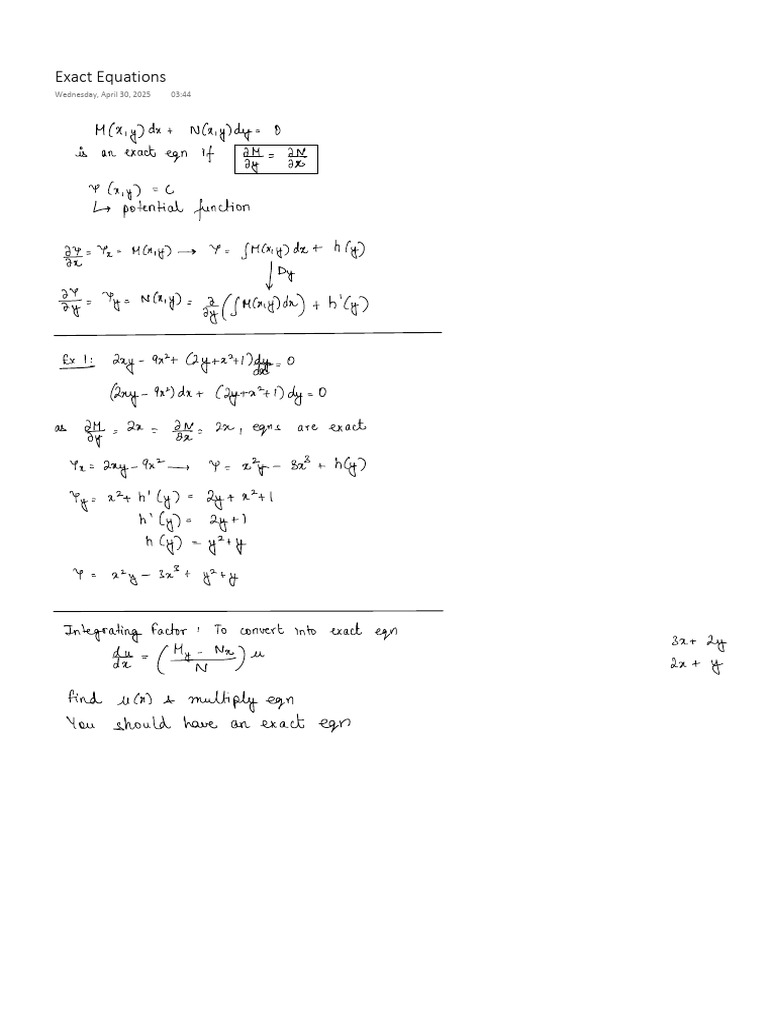 Exact Equations
Wednesday, April 30, 2025 03:44
M(x,y)dx + N(x,y)dy = 0
is an exact eqn if ∂M/∂y = ∂N/∂x
Ψ(x,y) = C
↳ potential function
∂Ψ/∂x = Ψx = M(x,y) → Ψ = ∫M(x,y)dx + h(y)
↓ Dy
∂Ψ/∂y = Ψy = N(x,y) = ∂/∂y(∫M(x,y)dx) + h'(y)
Ex 1: 2xy - 9x² + (2y+x²+1)dy/dx = 0
(2xy - 9x²)dx + (2y+x²+1)dy = 0
as ∂M/∂y = 2x = ∂N/∂x = 2x, eqns are exact
Ψx = 2xy - 9x² → Ψ = x²y - 3x³ + h(y)
Ψy = x² + h'(y) = 2y + x² + 1
h'(y) = 2y + 1
h(y) = y² + y
Ψ = x²y - 3x³ + y² + y
Integrating factor: To convert into exact eqn
du/dx = (My - Nx / N) u
find u(x) & multiply eqn
You should have an exact eqn
3x + 2y
2x + y